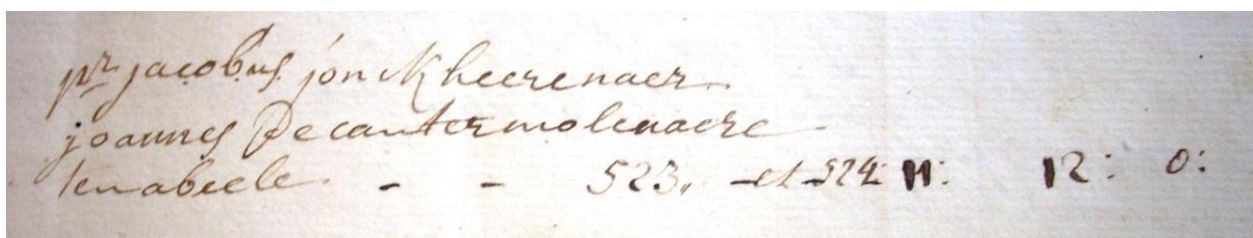 pr jacobus jonckheere naer
joannes De cauter molenaere
ten abeele - - 523. - et 524: 11: 12: 0: